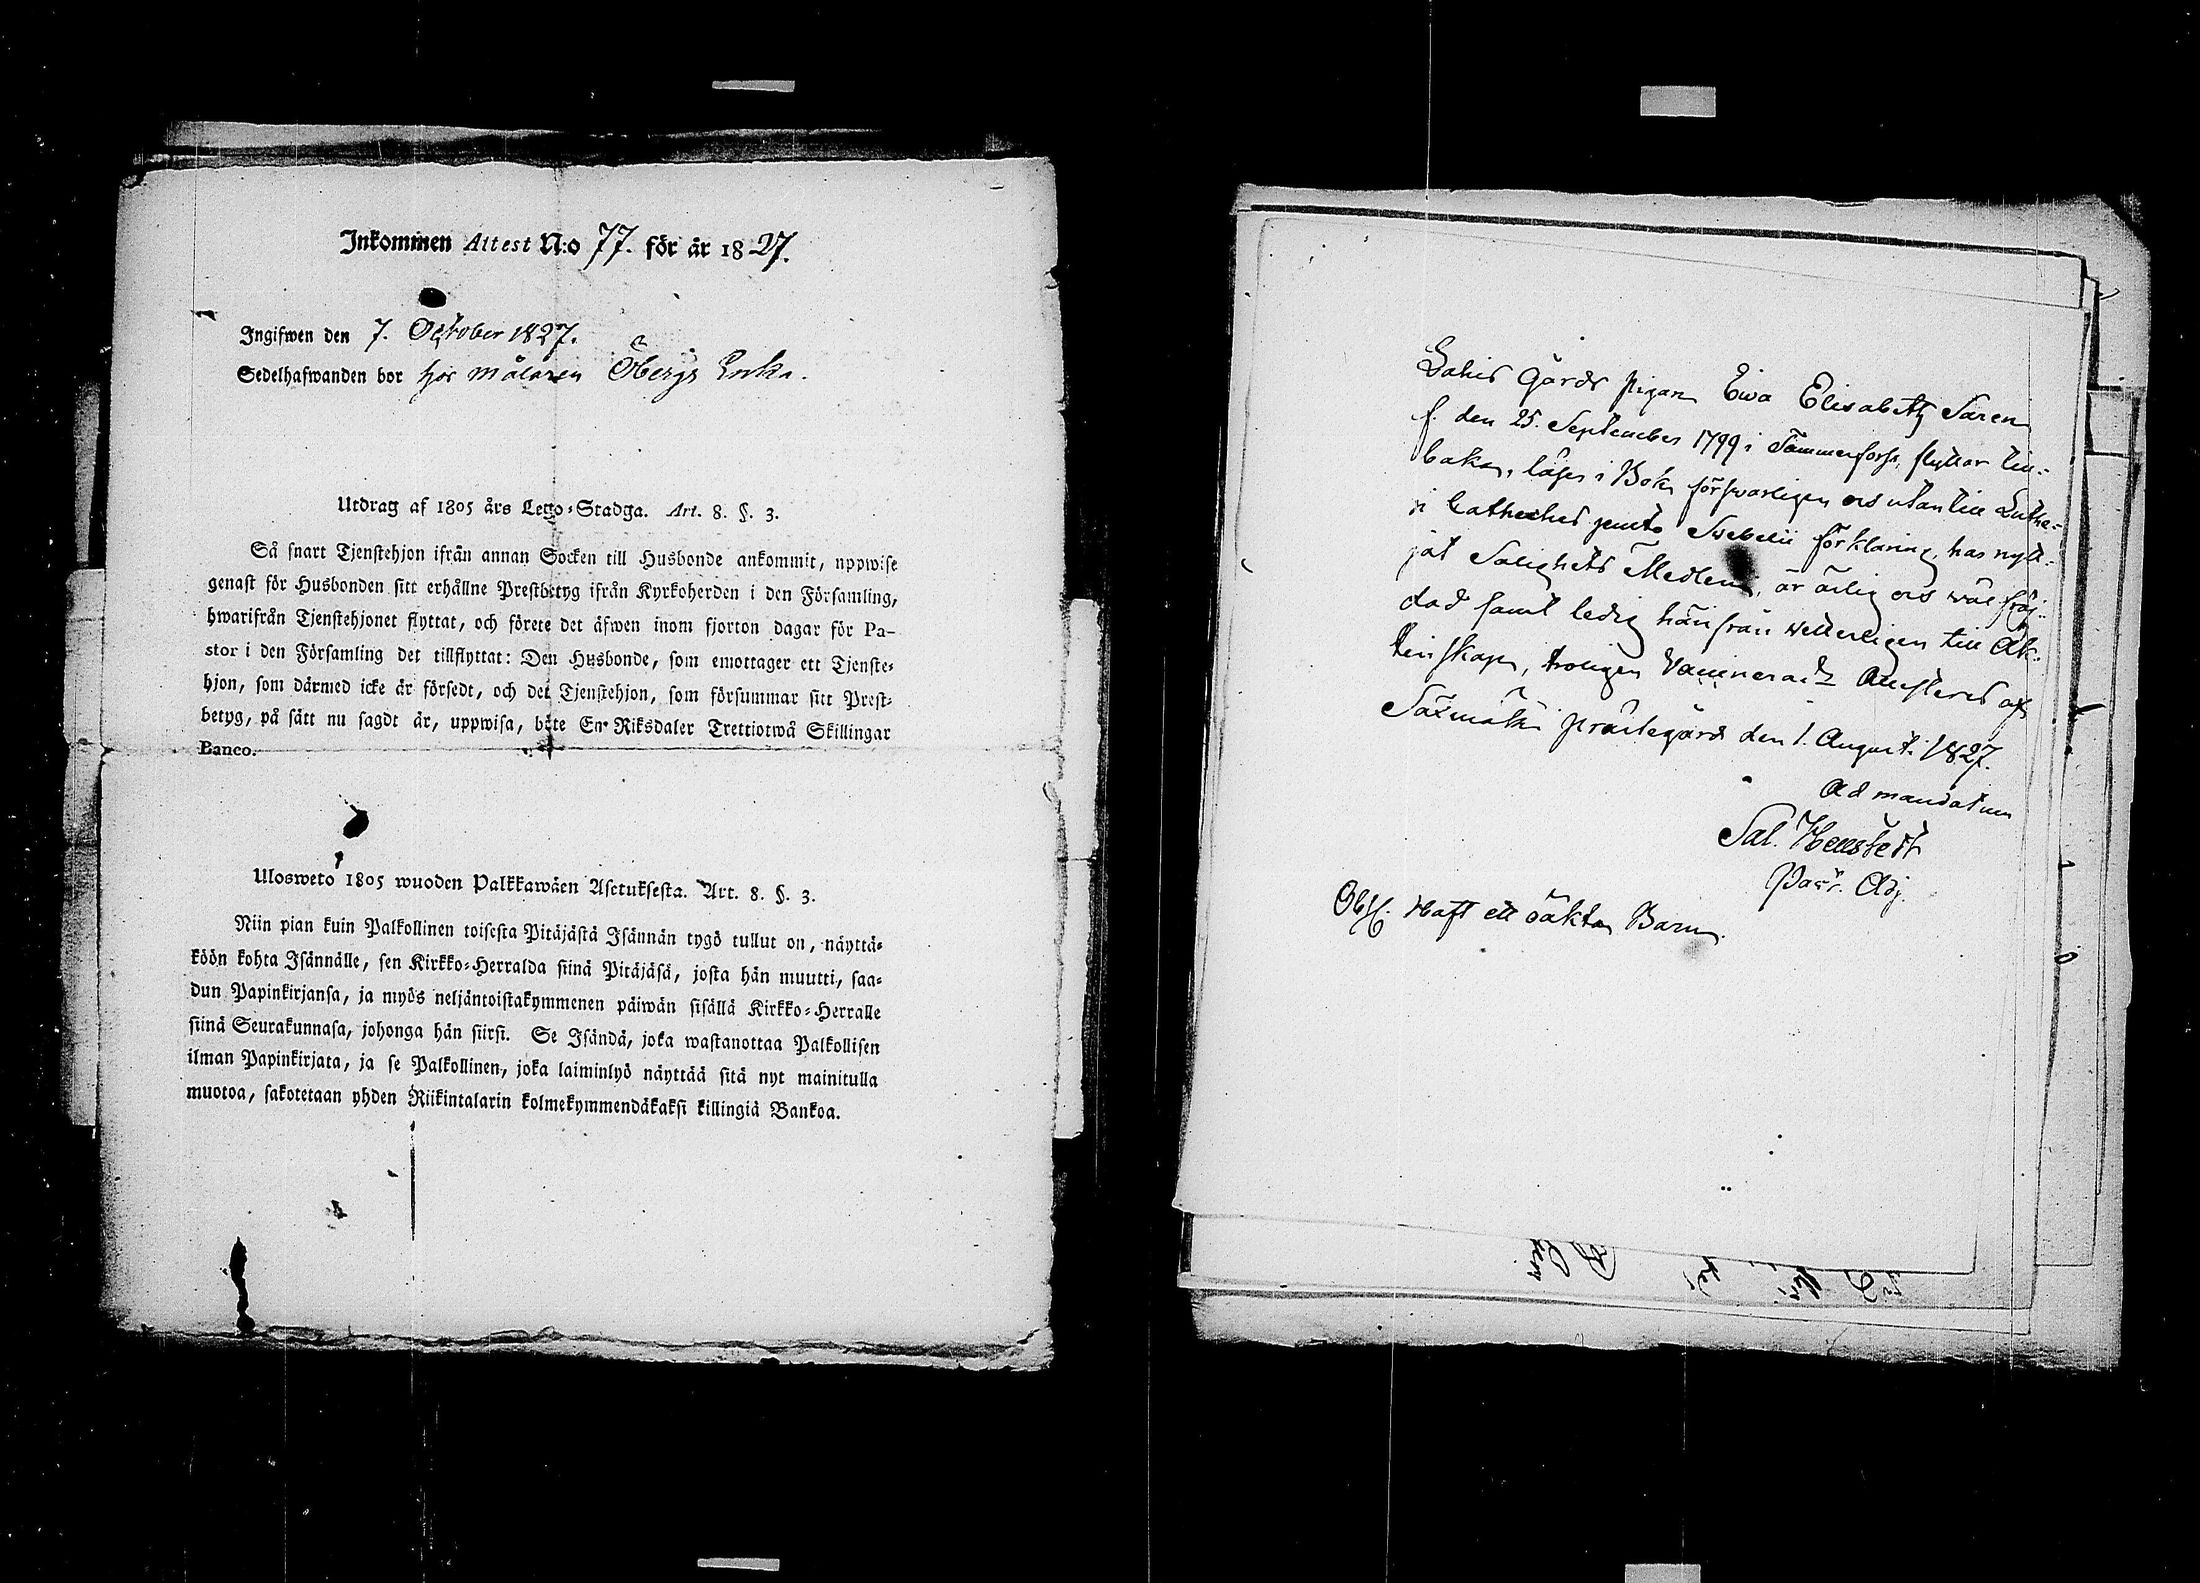 Inkommen Attest N:o 77. för år 1827.
Ingifwen den 7. October 1827.
Sedelhafwanden bor hos målaren Öbergs Enka.
Utdrag af 1805 års Lego-Stadga. Art. 8. §. 3.
Så snart Tjenstehjon ifrån annan Socken till Husbonde ankommit, uppwise
genast för Husbonden sitt erhållne Prestbetyg ifrån Kyrkoherden i den Församling,
hwarifrån Tjenstehjonet flyttat, och förete det äfwen inom fjorton dagar för Pa-
stor i den Församling det tillflyttat: Den Husbonde, som emottager ett Tjenste-
hjon, som därmed icke är försedt, och det Tjenstehjon, som försummar sitt Prest-
betyg, på sätt nu sagdt är, uppwisa, böte En Riksdaler Trettiotwå Skillingar
Banco.
Ulosweto 1805 wuoden Palkkawäen Asetuksesta. Art. 8. §. 3.
Niin pian kuin Palkollinen toisesta Pitäjästä Isännän tygö tullut on, näyttä-
köön kohta Isännälle, sen Kirkko-Herralda siinä Pitäjäsä, josta hän muutti, saa-
dun Papinkirjansa, ja myös neljäntoistakymmenen päiwän sisällä Kirkko-Herralle
siinä Seurakunnasa, johonga hän siirsi. Se Isändä, joka wastanottaa Palkollisen
ilman Papinkirjata, ja se Palkollinen, joka laiminlyö näyttää sitä nyt mainitulla
muotoa, sakotetaan yhden Riikintalarin kolmekymmendäkaksi killingiä Bankoa.
Lahis Gårds pigan Ewa Elisabeth Saren
f. den 25. September 1799 i Tammerfors, flyttar till-
baka, läser i Bok försvarligen och utantill Luthe-
ri Catheches jemte Svebelii förklaring, har nytt-
jat Salighets Medlen, är ärlig och wäl fräj-
dad samt ledig härifrån wetterligen till Äk-
tenskap, troligen Vaccinerad. Attesteras af
Säxmäki prästegård den 1. August. 1827.
Ad mandatum
Sal. Hellstedt
Past. Adj.
Obs. Haft ett oäkta Barn.